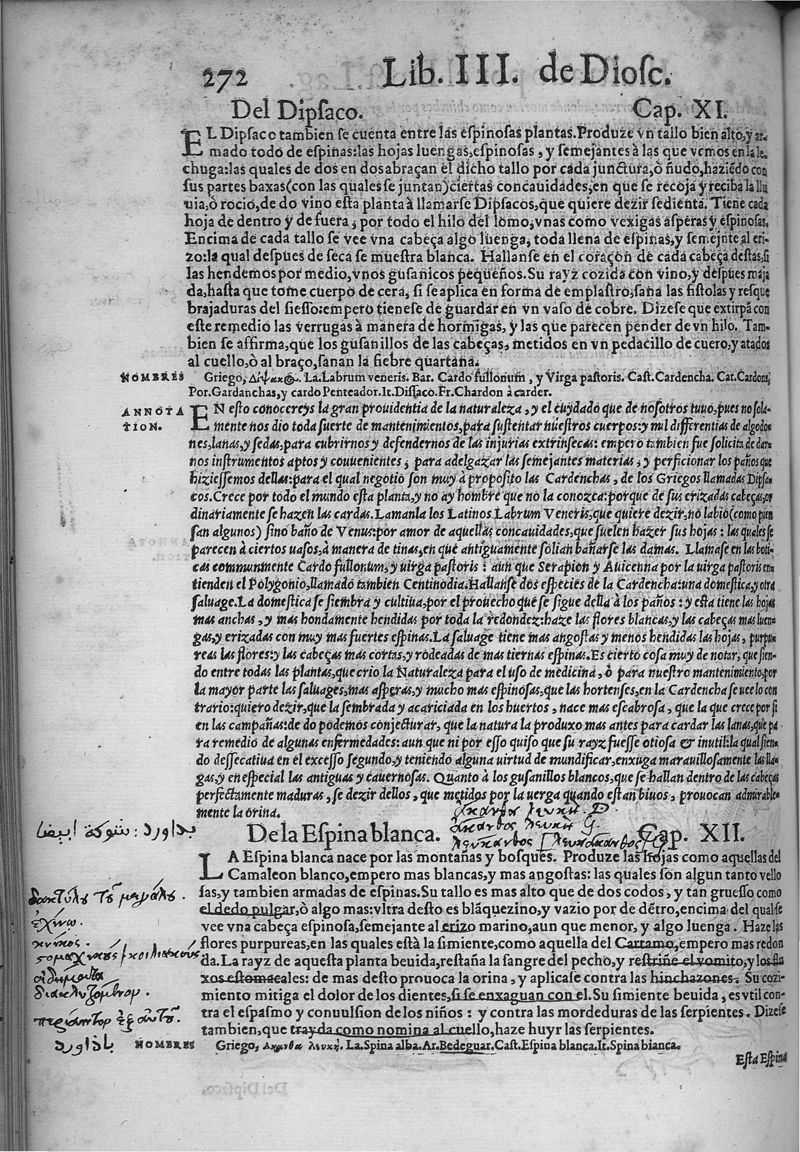 272 Lib. III. de Diosc.
Del Dipsaco. Cap. XI.
EL Dipsaco tambien se cuenta entre las espinosas plantas. Produze vn tallo bien alto, y ar-
mado todo de espinas: las hojas luengas, espinosas, y semejantes à las que vemos en la le-
chuga: las quales de dos en dos abraçan el dicho tallo por cada junctura, ò ñudo, haziẽdo con
sus partes baxas (con las quales se juntan) ciertas concauidades, en que se recoja y reciba la llu
uia, ò rocio, de do vino esta planta à llamarse Dipsacos, que quiere dezir sedienta. Tiene cada
hoja de dentro y de fuera, por todo el hilo del lomo, vnas como vexigas asperas y espinosas.
Encima de cada tallo se vee vna cabeça algo luenga, toda llena de espinas, y semejnte al eri-
zo: la qual despues de seca se muestra blanca. Hallanse en el coraçon de cada cabeça destas, si
las hendemos por medio, vnos gusanicos pequeños. Su rayz cozida con vino, y despues maja
da, hasta que tome cuerpo de cera, si se aplica en forma de emplastro, sana las fistolas y resque
brajaduras del siesso: empero tienese de guardar en vn vaso de cobre. Dizese que extirpa con
este remedio las verrugas à manera de hormigas, y las que parecen pender de vn hilo. Tam-
bien se affirma, que los gusanillos de las cabeças, metidos en vn pedacillo de cuero, y atados
al cuello, ò al braço, sanan la fiebre quartana.
NOMBRES Griego, Δίψακος. La. Labrum veneris. Bar. Cardo fullonum, y Virga pastoris. Cast. Cardencha. Cat. Cardons,
Por. Gardanchas, y cardo Penteador. It. Dissaco. Fr. Chardon à carder.
ANNOTA
TION.
EN esto conocereys la gran prouidentia de la naturaleza, y el cuydado que de nosotros tuuo, pues no sola-
mente nos dio toda suerte de mantenimientos, para sustentar nuestros cuerpos: y mil differentias de algodo
nes, lanas, y sedas, para cubrirnos y defendernos de las injurias extrinsecas: empero tambien fue solicita de dar
nos instrumentos aptos y conuenientes, para adelgazar las semejantes materias, y perficionar los paños que
hiziessemos dellas: para el qual negotio son muy à proposito las Cardenchas, de los Griegos llamadas Dipsa
cos. Crece por todo el mundo esta planta, y no ay hombre que no la conozca: porque de sus erizadas cabeças, or
dinariamente se hazen las cardas. Lamanla los Latinos Labrum Veneris, que quiere dezir, no labio (como pien
san algunos) sino baño de Venus: por amor de aquellas concauidades, que suelen hazer sus hojas: las quales se
parecen à ciertos uasos, à manera de tinas, en que antiguamente solian bañarse las damas. Llamase en las boti-
cas communmente Cardo fullonum, y uirga pastoris: aun que Serapion y Auicenna por la uirga pastoris en
tienden el Polygonio, llamado tambien Centinodia. Hallanse dos especies de la Cardencha: una domestica, y otra
saluage. La domestica se siembra y cultiua, por el prouecho que se sigue della à los paños: y esta tiene las hojas
mas anchas, y mas hondamente hendidas por toda la redondez: haze las flores blancas, y las cabeças mas luen
gas, y erizadas con muy mas fuertes espinas. La saluage tiene mas angostas y menos hendidas las hojas, purpu
reas las flores: y las cabeças mas cortas, y rodeadas de mas tiernas espinas. Es cierto cosa muy de notar, que sien-
do entre todas las plantas, que crio la Naturaleza para el uso de medicina, ò para nuestro mantenimiento, por
la mayor parte las saluages, mas asperas, y mucho mas espinosas, que las hortenses, en la Cardencha se uee lo con
trario: quiero dezir, que la sembrada y acariciada en los huertos, nace mas escabrosa, que la que crece por si
en las campañas: de do podemos conjecturar, que la natura la produxo mas antes para cardar las lanas, que pa
ra remedio de algunas enfermedades: aun que ni por esso quiso que su rayz fuesse otiosa & inutil: la qual sien
do dessecatiua en el excesso segundo, y teniendo alguna uirtud de mundificar, enxuga marauillosamente las lla-
gas, y en especial las antiguas y cauernosas. Quanto à los gusanillos blancos, que se hallan dentro de las cabeças
perfectamente maduras, se dezir dellos, que metidos por la uerga quando estan biuos, prouocan admirable-
mente la orina.
De la Espina blanca. Cap. XII.
LA Espina blanca nace por las montañas y bosques. Produze las hojas como aquellas del
Camaleon blanco, empero mas blancas, y mas angostas: las quales son algun tanto vello
sas, y tambien armadas de espinas. Su tallo es mas alto que de dos codos, y tan gruesso como
el dedo pulgar, ò algo mas: vltra desto es blãquezino, y vazio por de dẽtro, encima del qual se
vee vna cabeça espinosa, semejante al erizo marino, aun que menor, y algo luenga. Haze las
flores purpureas, en las quales està la simiente, como aquella del Cartamo, empero mas redon
da. La rayz de aquesta planta beuida, restaña la sangre del pecho, y restriñe el vomito, y los flu
xos estomacales: de mas desto prouoca la orina, y aplicase contra las hinchazones. Su cozi-
miento mitiga el dolor de los dientes, si se enxaguan con el. Su simiente beuida, es vtil con-
tra el espasmo y conuulsion de los niños: y contra las mordeduras de las serpientes. Dizese
tambien, que trayda como nomina al cuello, haze huyr las serpientes.
NOMBRES Griego, Ακανθα λευκη. La. Spina alba. Ar. Bedeguar. Cast. Espina blanca. It. Spina bianca.
Esta Espina